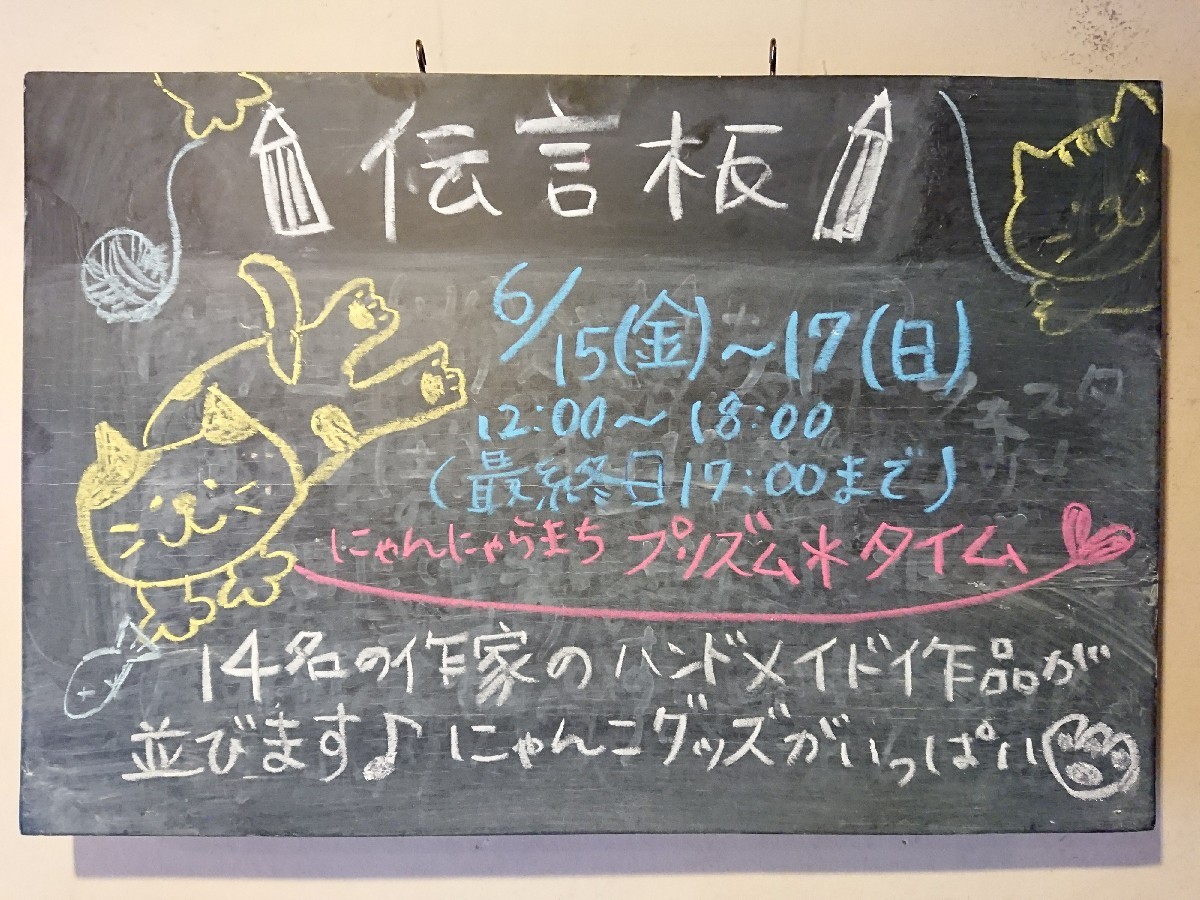 伝言板
6/15(金)~17(日)
12:00~18:00
(最終日17:00まで)
にゃんにゃらまち プリズム*タイム
14名の作家のハンドメイド作品が
並びます♪にゃんこグッズがいっぱい